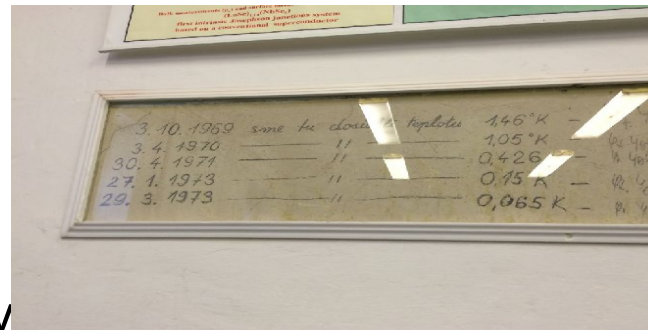 (LaSe)1.14(NbSe2)
First intrinsic Josephson junctions system
based on a conventional superconductor
3. 10. 1969 sme tu teplotu 1,46°K –
3. 4. 1970 —— " —— 1,05°K –
30. 4. 1971 —— " —— 0,426
27. 1. 1973 —— " —— 0,15 K –
29. 3. 1973 —— " —— 0,065 K –